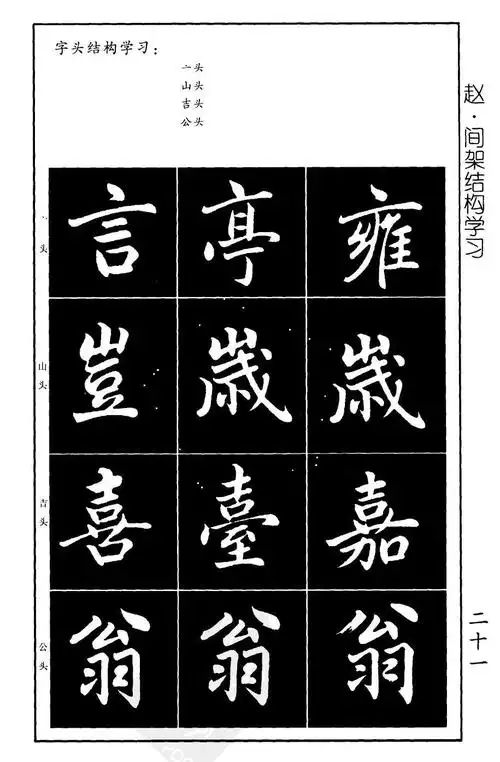 字头结构学习：
亠头
山头
吉头
公头
赵·间架结构学习
丶头
言亭雍
山头
豈歲歲
吉头
喜臺嘉
公头
翁翁翁
二十一